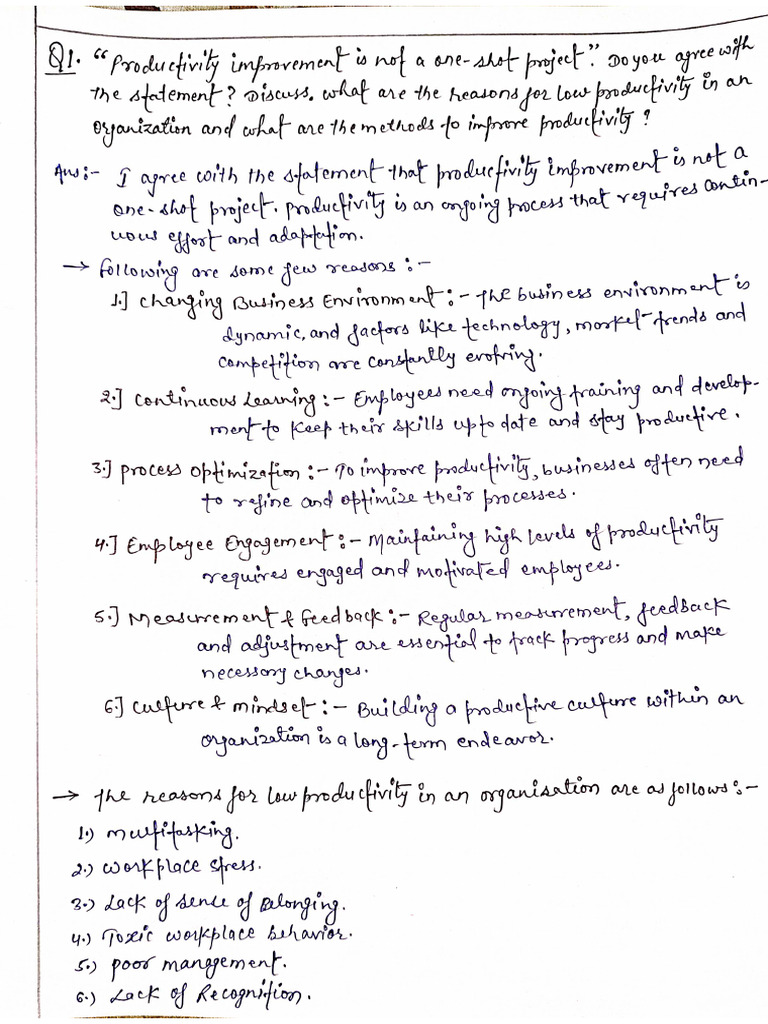 Q1. "Productivity improvement is not a one-shot project". Do you agree with
the statement? Discuss. What are the reasons for low productivity in an
Organization and what are the methods to improve productivity?
Ans:- I agree with the statement that productivity improvement is not a
one-shot project. Productivity is an ongoing process that requires contin-
uous effort and adaptation.
→ Following are some few reasons:-
1.] Changing Business Environment:- The business environment is
dynamic, and factors like technology, market-trends and
competition are constantly evolving.
2.] Continuous Learning:- Employees need ongoing training and develop-
ment to keep their skills upto date and stay productive.
3.] Process Optimization:- To improve productivity, businesses often need
to refine and optimize their processes.
4.] Employee Engagement:- Maintaining high levels of productivity
requires engaged and motivated employees.
5.] Measurement & feedback:- Regular measurement, feedback
and adjustment are essential to track progress and make
necessary changes.
6.] Culture & mindset:- Building a productive culture within an
organization is a long-term endeavor.
→ The reasons for low productivity in an organisation are as follows:-
1.) Multitasking.
2.) Workplace Stress.
3.) Lack of sense of Belonging.
4.) Toxic workplace behavior.
5.) Poor mangement.
6.) Lack of Recognition.